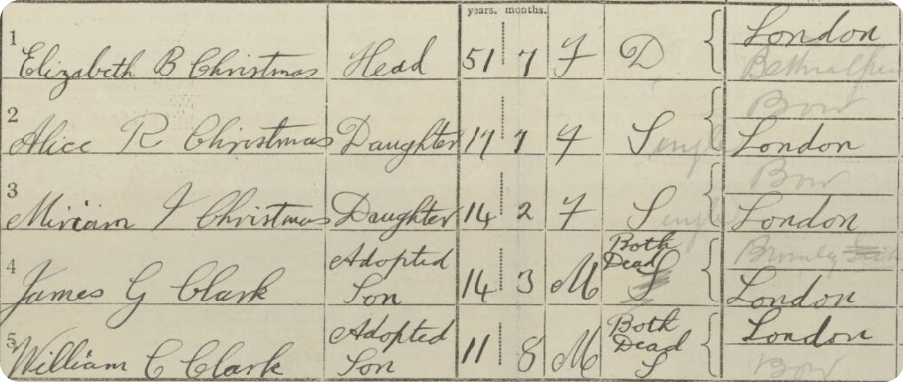 years. months.
1 Elizabeth B Christmas Head 51 7 F D London
2 Bow
Alice R Christmas Daughter 17 7 F Single London
3 Bow
Miriam I Christmas Daughter 14 2 F Single London
4 Adopted Both Bromley
James G Clark Son 14 3 M Dead S London
5 Adopted Both London
William C Clark Son 11 8 M Dead S Bow